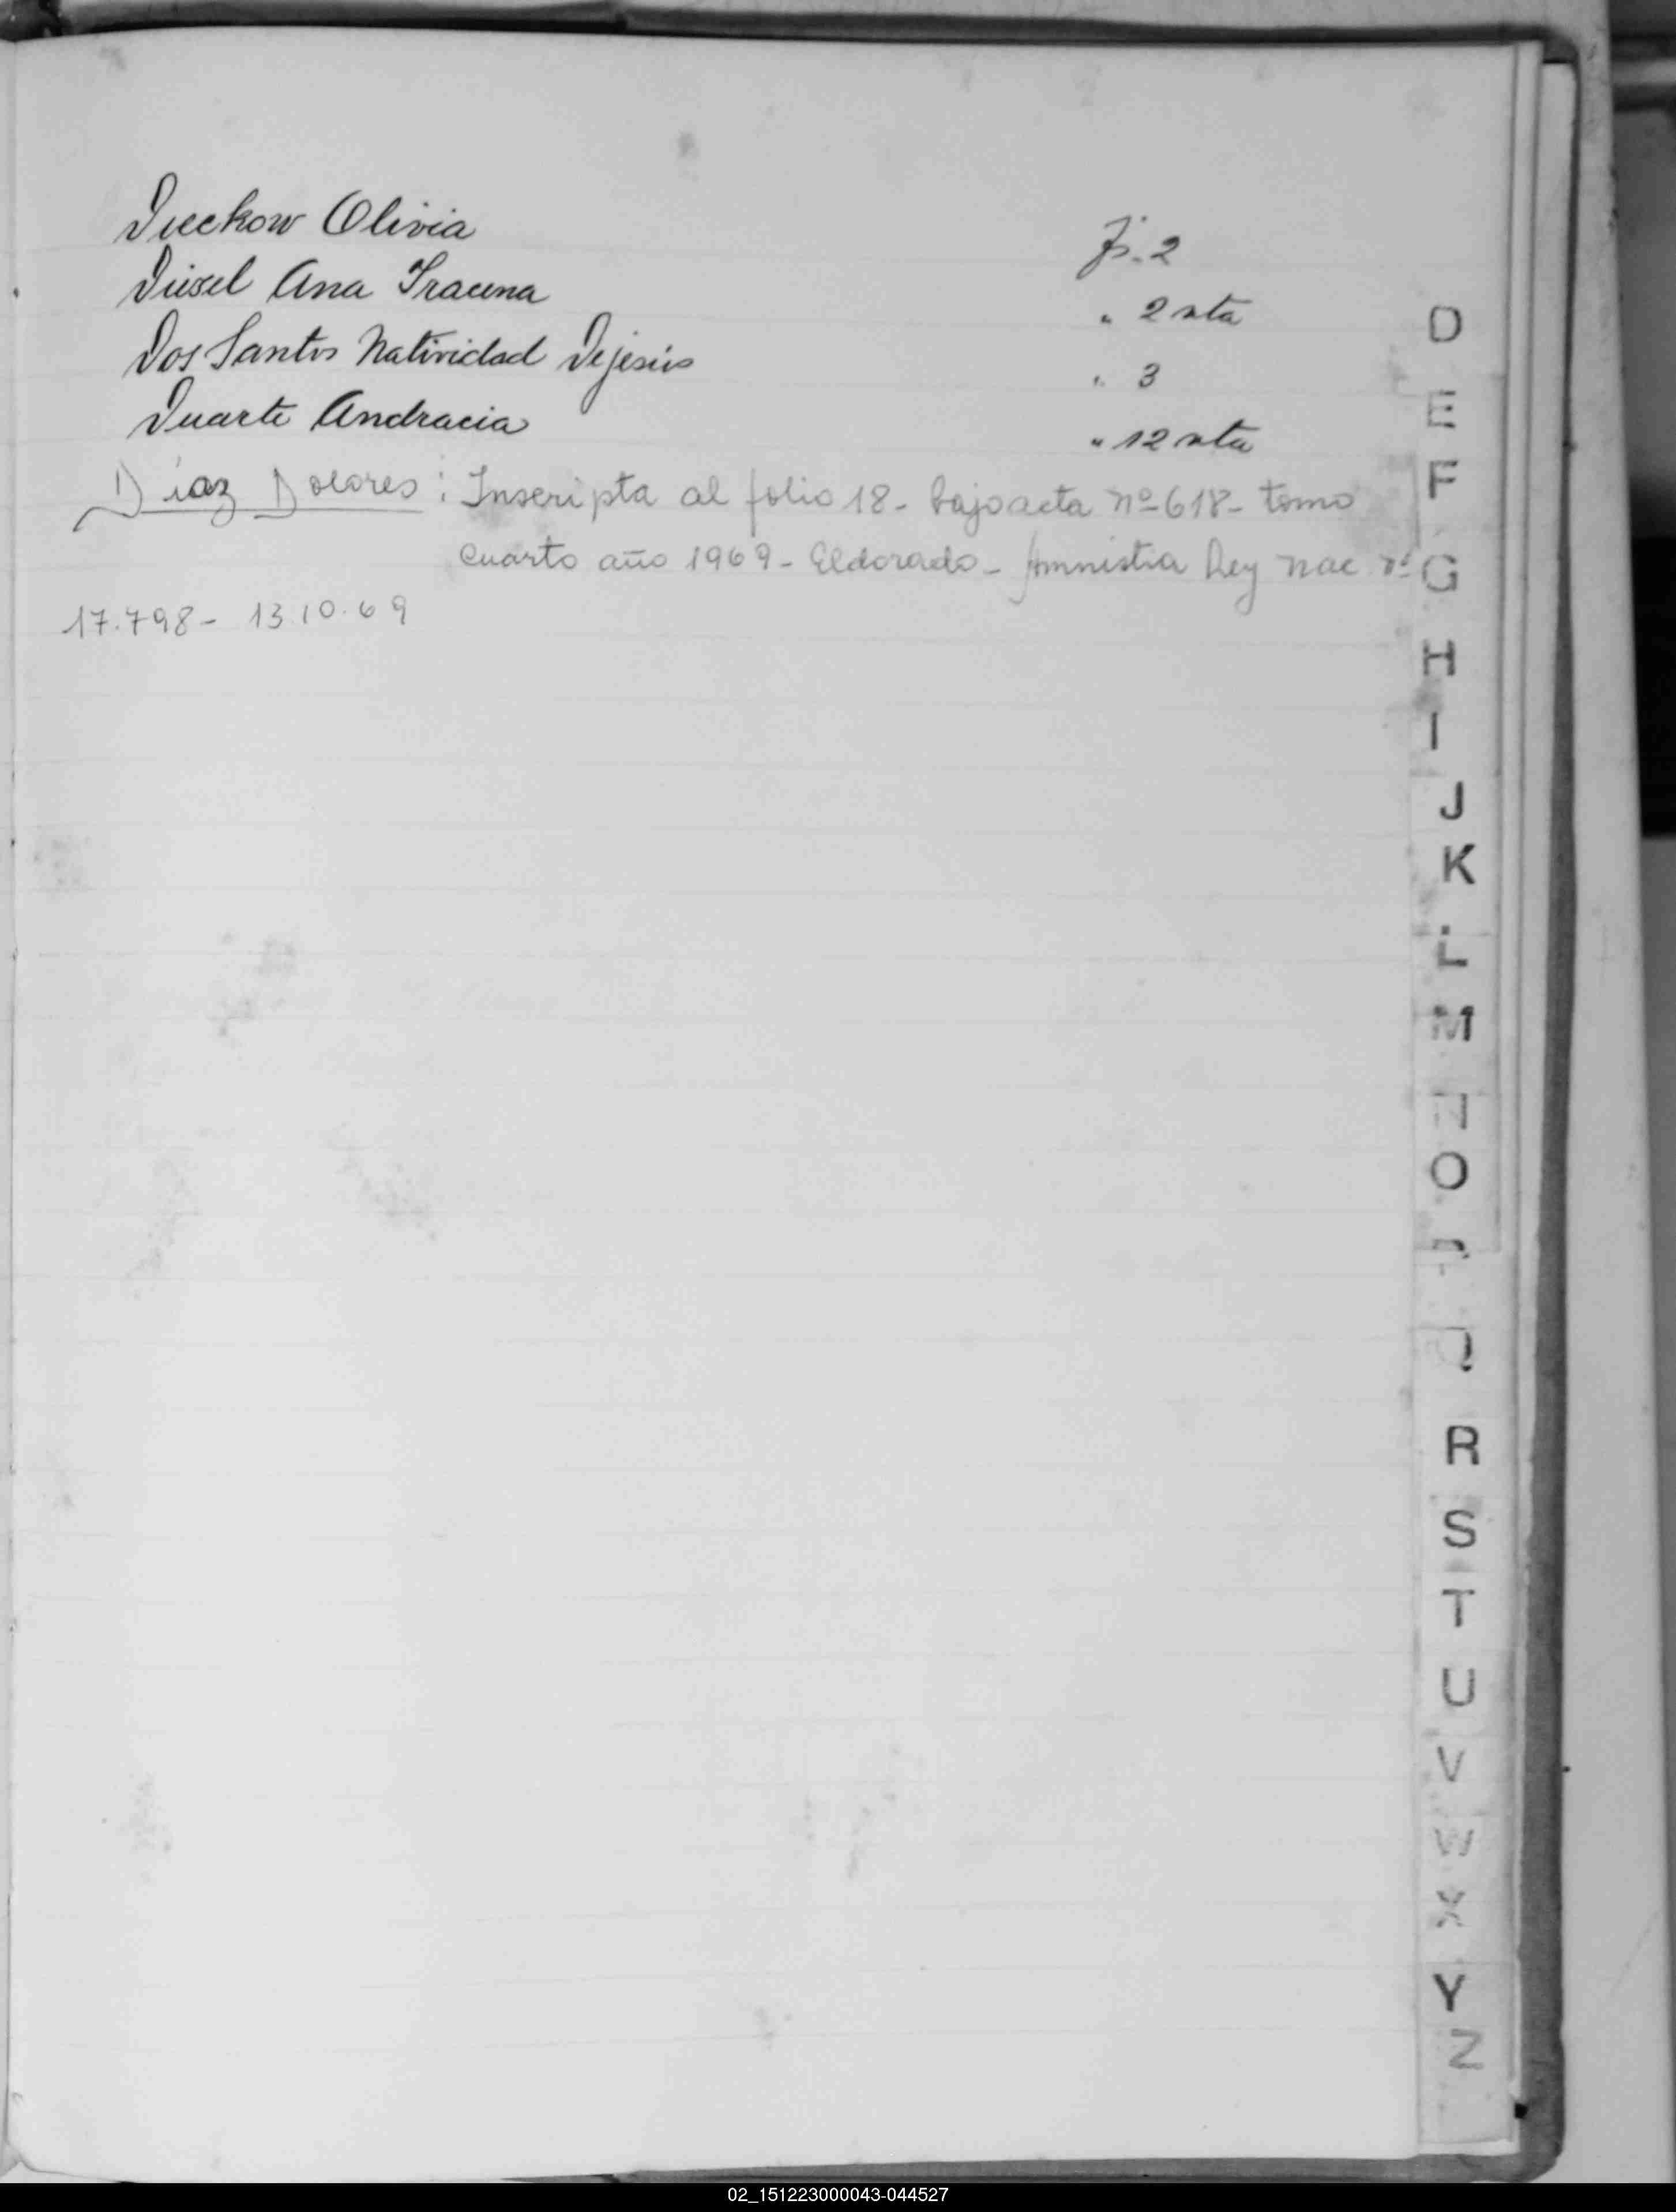 Dieckow Olivia fs. 2
Diesel Ana Iracema " 2 vta
Dos Santos Natividad Dejesús " 3
Duarte Andracia " 12 vta
Díaz Dolores: Inscripta al folio 18- bajo acta nº 618- tomo
cuarto año 1969- Eldorado- Amnistia Ley nac nº
17.798- 13.10.69
D
E
F
G
H
I
J
K
L
M
N
O
P
Q
R
S
T
U
V
W
X
Y
Z
02_151223000043-044527